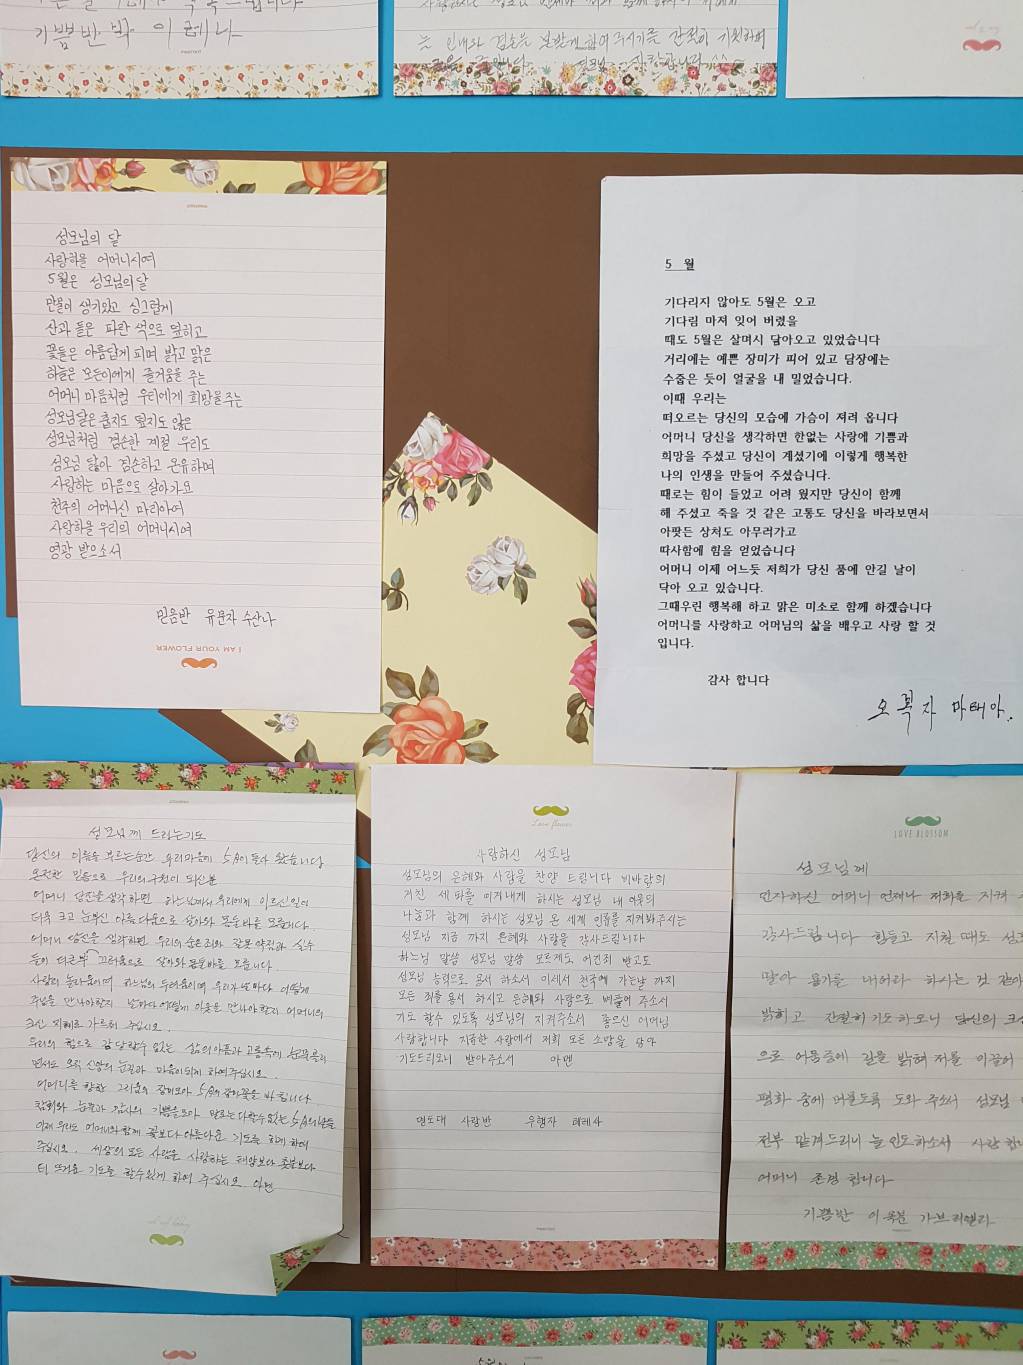 기쁨반 박 이레나
는 인내와 겸손을 본받게 하여 주시기를 간절히 기원하며
성모님의 달
사랑하올 어머니시여
5월은 성모님의 달
만물이 생기있고 싱그럽게
산과 들은 파란 색으로 덮히고
꽃들은 아름답게 피며 밝고 맑은
하늘은 모든이에게 즐거움을 주는
어머니 마음처럼 우리에게 희망을 주는
성모님달은 춥지도 덥지도 않은
성모님처럼 겸손한 계절 우리도
성모님 닮아 겸손하고 온유하며
사랑하는 마음으로 살아가요
천주의 어머니신 마리아여
사랑하올 우리의 어머니시여
영광 받으소서
믿음반 유문자 수산나
I AM YOUR FLOWER
5 월
기다리지 않아도 5월은 오고
기다림 마져 잊어 버렸을
때도 5월은 살며시 닮아오고 있었습니다
거리에는 예쁜 장미가 피어 있고 담장에는
수줍은 듯이 얼굴을 내 밀었습니다.
이때 우리는
떠오르는 당신의 모습에 가슴이 져려 옵니다
어머니 당신을 생각하면 한없는 사랑에 기쁨과
희망을 주셨고 당신이 계셨기에 이렇게 행복한
나의 인생을 만들어 주셨습니다.
때로는 힘이 들었고 어려 웠지만 당신이 함께
해 주셨고 죽을 것 같은 고통도 당신을 바라보면서
아팟든 상처도 아무러가고
따사함에 힘을 얻었습니다
어머니 이제 어느듯 저희가 당신 품에 안길 날이
닥아 오고 있습니다.
그때우린 행복해 하고 맑은 미소로 함께 하겠습니다
어머니를 사랑하고 어머님의 삶을 배우고 사랑 할 것
입니다.
감사 합니다
오 복 자 마태아.
성모님께 드리는기도
당신의 이름을 부르는순간 우리마음에 5月이 돌아 왔습니다
온전한 믿음으로 우리의 구원이 되신분
어머니 당신을 생각하면 하느님께서 우리에게 이르신일이
더욱 크고 눈부신 아름다움으로 살아와 몸둘바를 모릅니다.
어머니 당신을 생각하면 우리의 숨은죄와 잘못 약점과 실수
들이 더큰 부끄러움으로 살아와 몸둘바를 모릅니다.
사랑의 놀라움이며 하느님의 두려움이며 우리가 날마다 어떻게
주님을 만나야할지 날마다 어떻게 이웃을 만나야할지 어머니의
크신 지혜로 가르쳐 주십시오.
우리의 힘으로 감당할수 없는 삶의아픔과 고통속에 눈물흘리
면서도 오직 신앙의 눈길과 마음이되게 하여주십시오.
어머니를 향한 그리움의 장미모아 5月의 장미꽃을 바칩니다
참회와 눈물과 감사의 기쁨을모아
이제 우리도 어머니와함께 꽃보다 아름다운 기도를 하게 하여
주십시오. 세상의 모든 사람을 사랑하는 태양보다 촛불보다
더 뜨거운 기도를 할수있게 하여 주십시오. 아멘
Love flower
사랑하신 성모님
성모님의 은혜와 사랑을 찬양 드립니다 비바람의
거친 세파를 이겨내게 하시는 성모님 내 이웃의
나눔과 함께 하시는 성모님 온 세계 인류를 지켜봐주시는
성모님 지금 까지 은혜와 사랑을 감사드립니다
하느님 말씀 성모님 말씀 모르게도 어긴죄 받고도
성모님 능력으로 용서 하소서 이세서 천국에 가는날 까지
모든 죄를 용서 하시고 은혜와 사랑으로 베풀어 주소서
기도 할수 있도록 성모님의 지켜주소서 좋으신 어머님
사랑합니다 지극한 사랑에서 저희 모든 소망을 담아
기도드리오니 받아주소서 아멘
연도대 사랑반 우행자 헤레사
LOVE BLOSSOM
성모님께
인자하신 어머니 언제나 저희를 지켜
감사드립니다 힘들고 지칠 때도 성모
말아 용기를 내어라 하시는 것 같아
밝히고 간절히 기도하오니 당신의 크신
으로 어둠중에 길을 밝혀 저를 이끌어
평화 중에 머물도록 도와 주소서 성모님
전부 맡겨드리니 늘 인도하소서 사랑합
어머니 존경 합니다
기쁨반 이옥분 가브리엘라